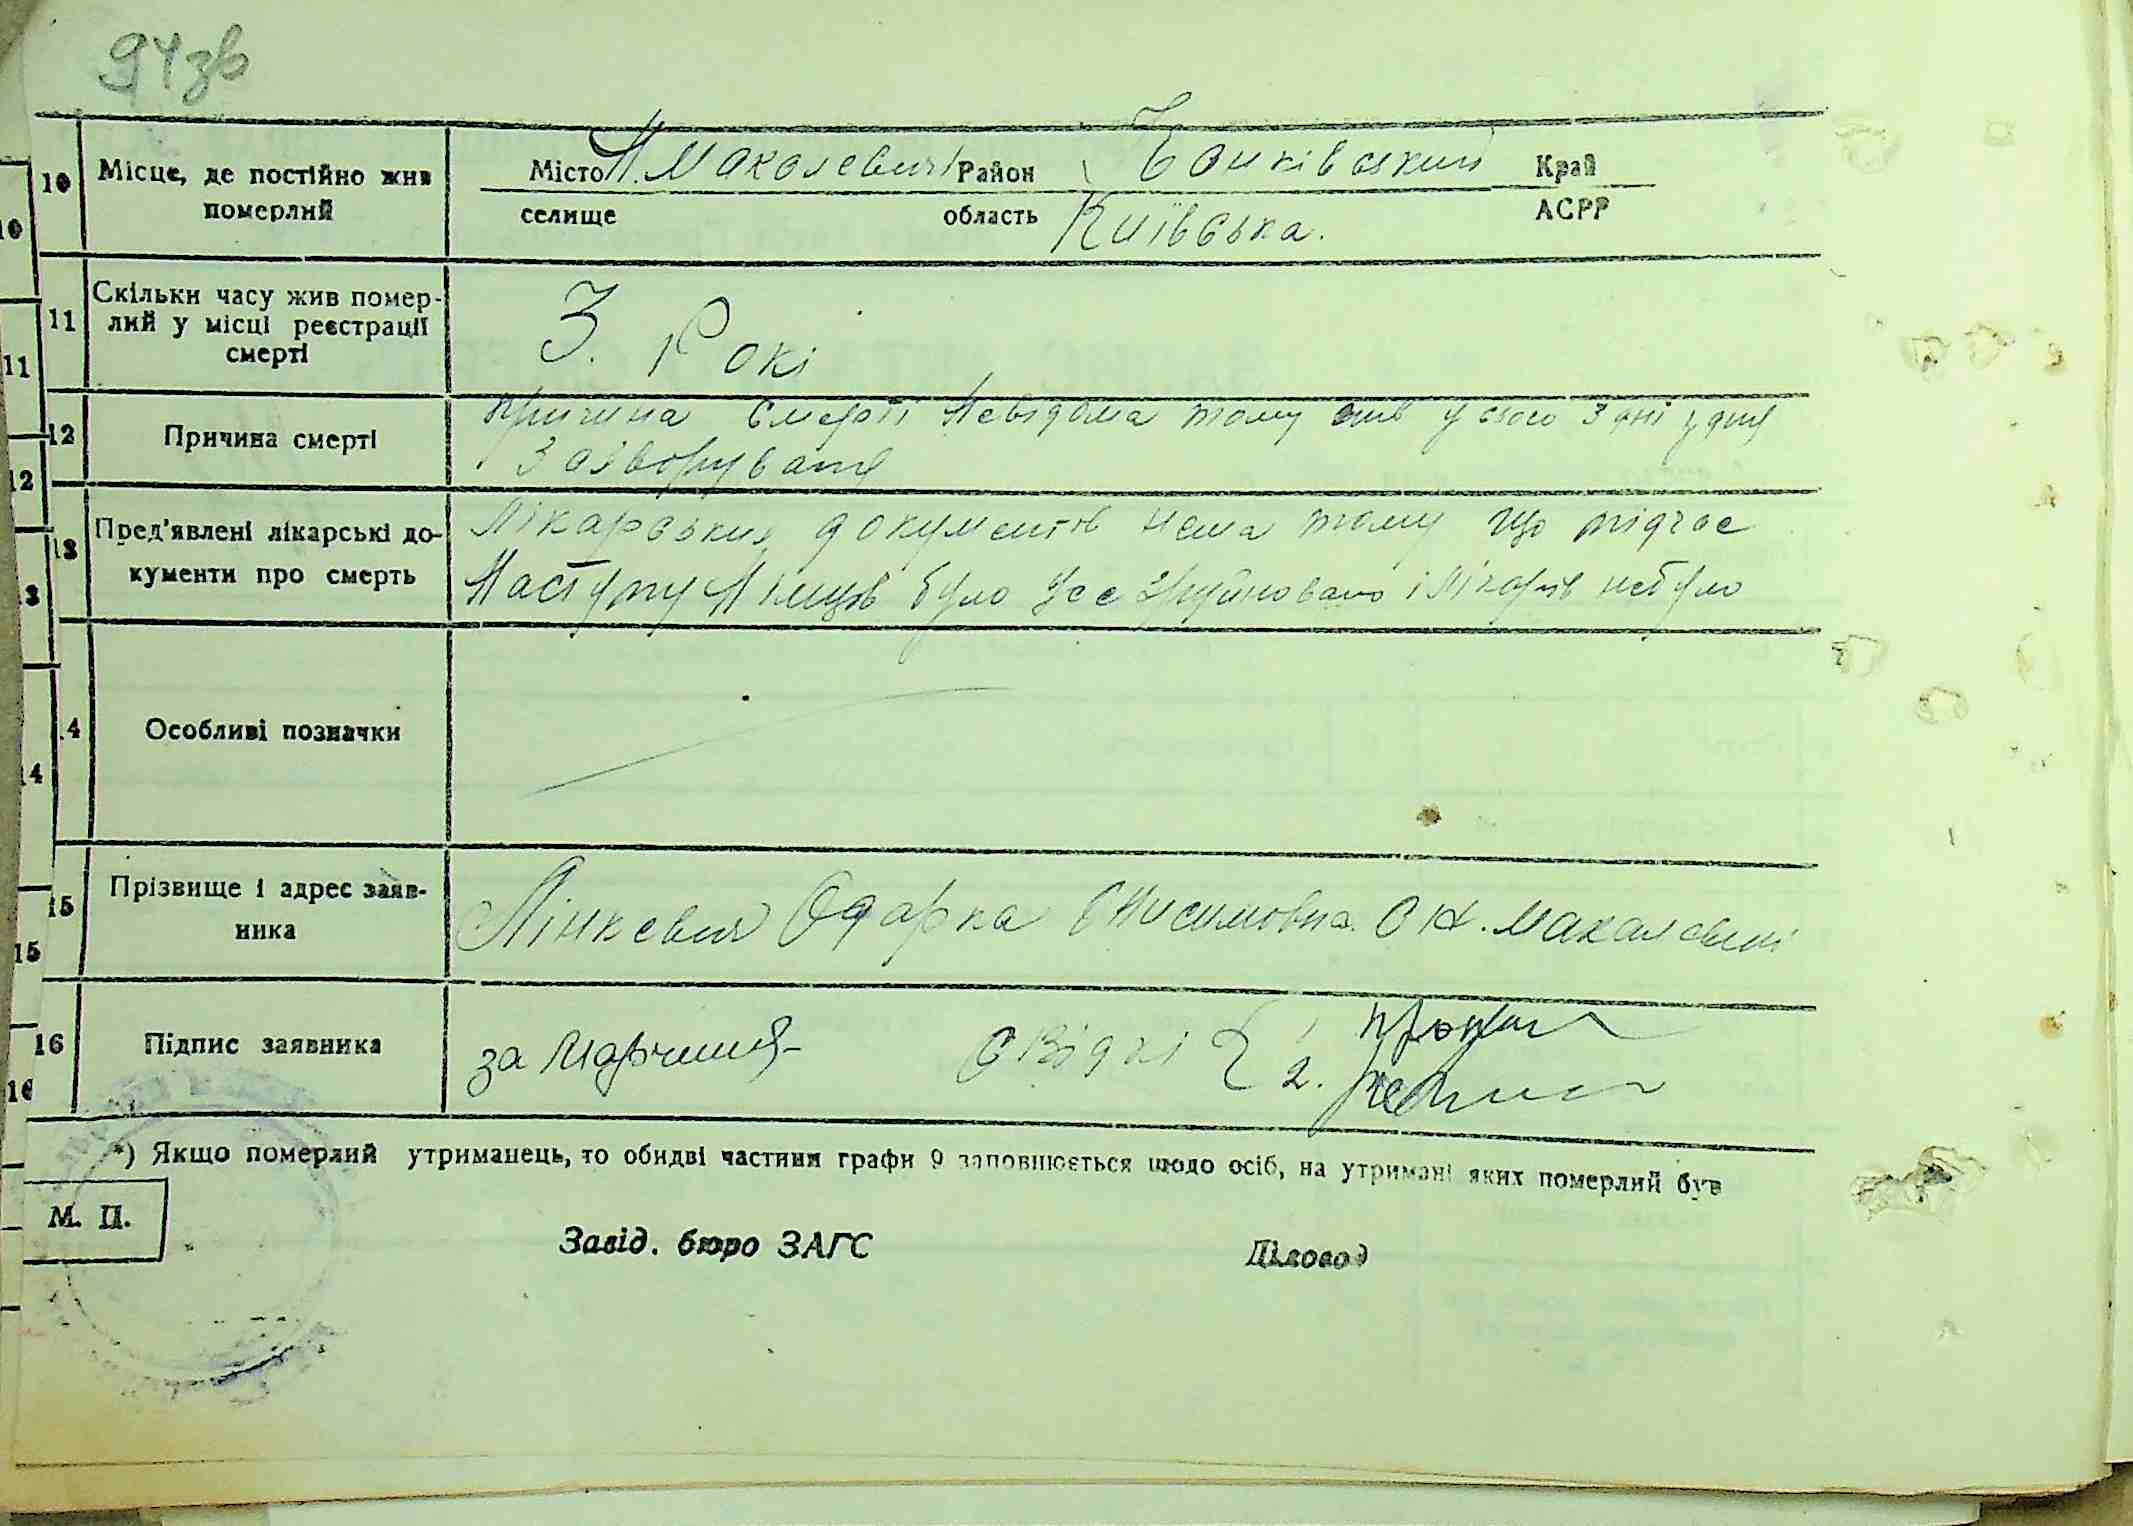 94зв
10 Місце, де постійно жив Місто Н. Макалевичі Район Банківський Край
померлий селище область Київська. АСРР
11 Скільки часу жив помер-
лий у місці реєстрації
смерті
3. Рокі
12 Причина смерті
причина смерті Невідома тому у свого 3 дні
13 Пред'явлені лікарські до-
кументи про смерть
Лікарських документів нема тому що підчас
Наступу Німців було Усе Зруйновано і Лікарів небуло
14 Особливі позначки
15 Прізвище і адрес заяв-
ника
Лінкевич Одарка Онисимовна С Н. Макалевичі
16 Підпис заявника
за свідкі 1
2.
*) Якщо померлий утриманець, то обидві частини графи 9 заповнюється щодо осіб, на утримані яких померлий був
М. П.
Завід. бюро ЗАГС Діловод
10
11
12
14
15